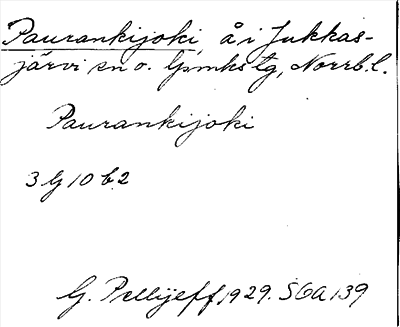 Paurankijoki, å i Jukkas-
järvi sn o. lpmks tg, Norrb. l.
Paurankijoki
3 G 10 b 2
G. Pellijeff 1929. SOA 139